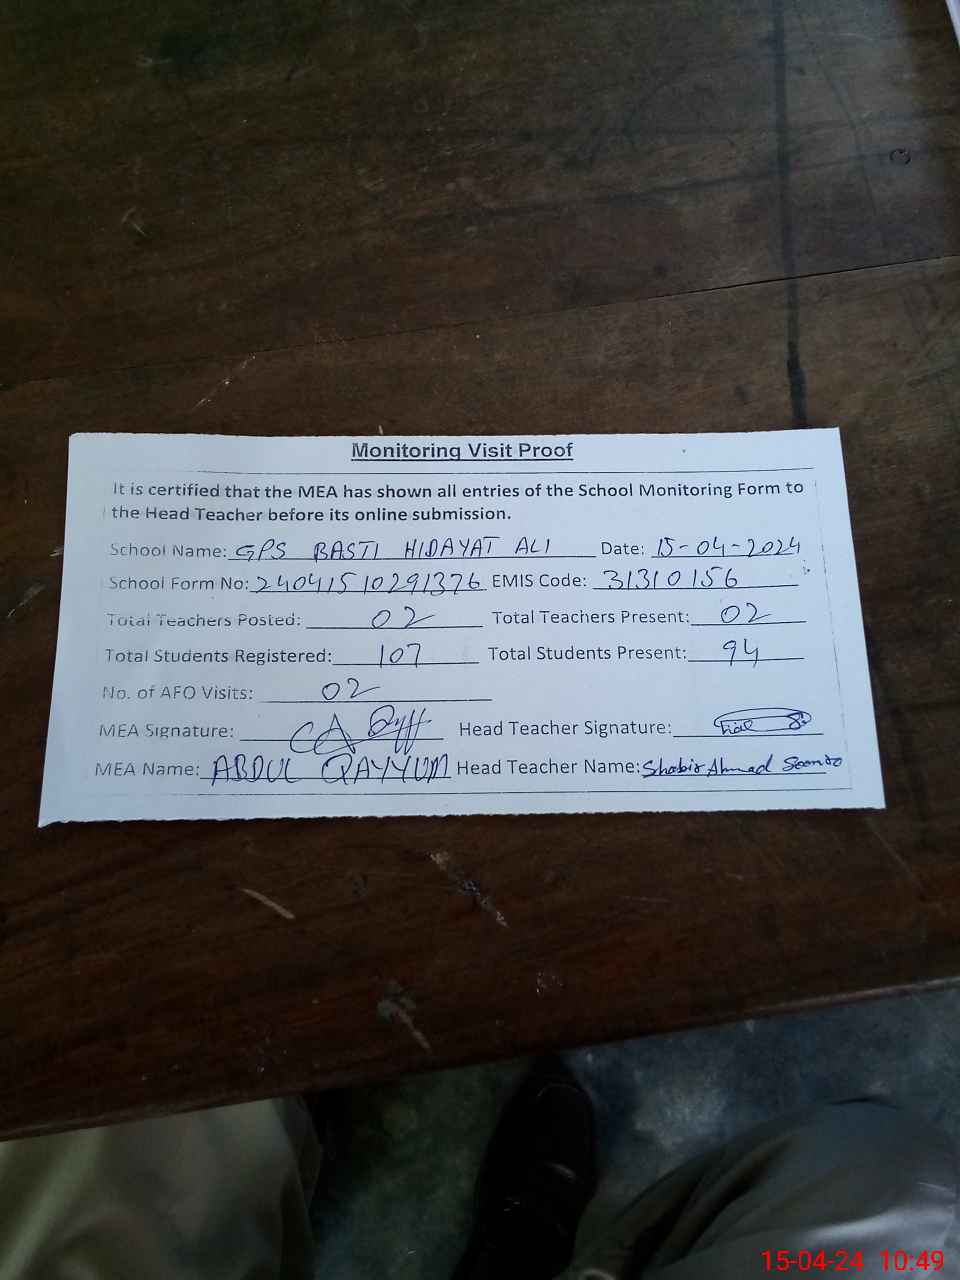 Monitoring Visit Proof
It is certified that the MEA has shown all entries of the School Monitoring Form to
the Head Teacher before its online submission.
School Name: GPS BASTI HIDAYAT ALI Date: 15-04-2024
School Form No: 24041510291376 EMIS Code: 31310156
Total Teachers Posted: 02 Total Teachers Present: 02
Total Students Registered: 107 Total Students Present: 94
No. of AFO Visits: 02
MEA Signature: Head Teacher Signature:
MEA Name: ABDUL QAYYUM Head Teacher Name: Shabir Ahmad
15-04-24 10:49